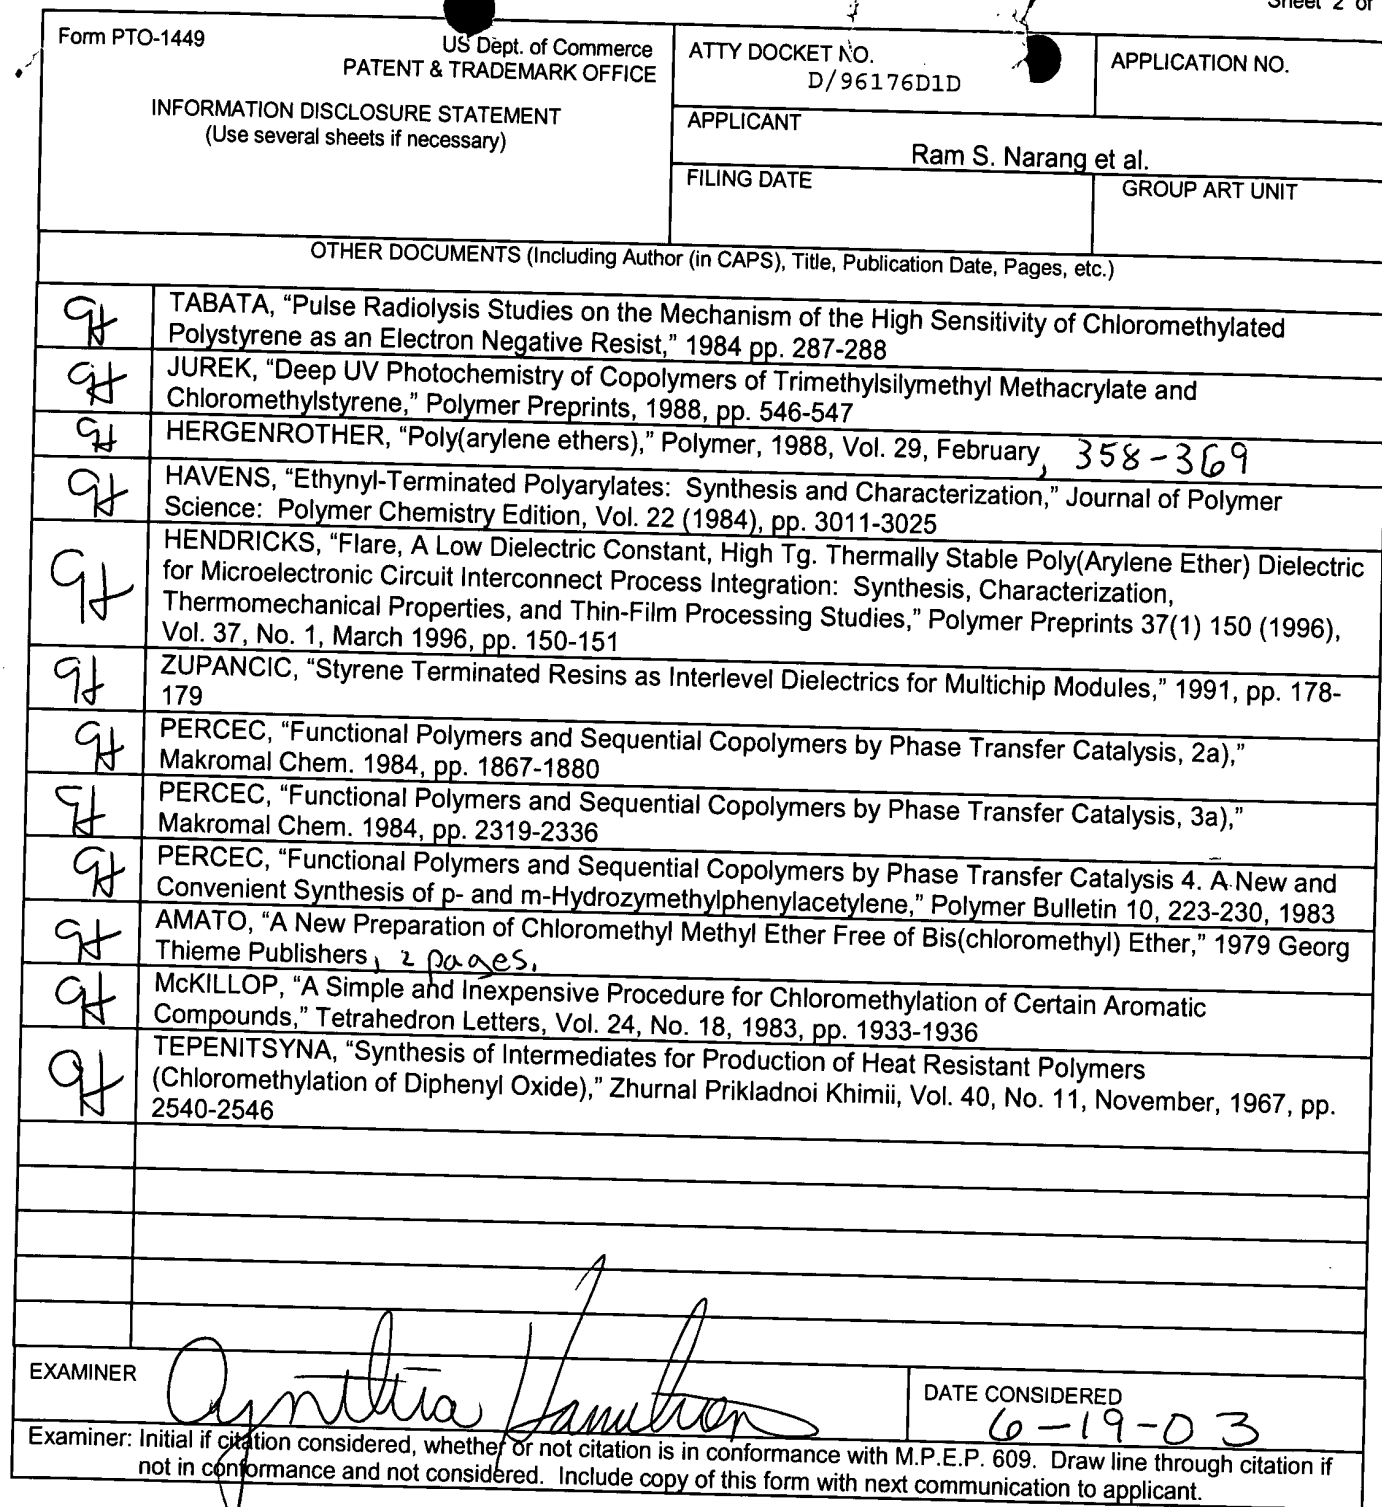 Sheet 2 of
Form PTO-1449
US Dept. of Commerce
PATENT & TRADEMARK OFFICE
INFORMATION DISCLOSURE STATEMENT
(Use several sheets if necessary)
ATTY DOCKET NO.
D/96176D1D
APPLICATION NO.
APPLICANT
Ram S. Narang et al.
FILING DATE
GROUP ART UNIT
OTHER DOCUMENTS (Including Author (in CAPS), Title, Publication Date, Pages, etc.)
CH
TABATA, “Pulse Radiolysis Studies on the Mechanism of the High Sensitivity of Chloromethylated
Polystyrene as an Electron Negative Resist,” 1984 pp. 287-288
CH
JUREK, “Deep UV Photochemistry of Copolymers of Trimethylsilymethyl Methacrylate and
Chloromethylstyrene,” Polymer Preprints, 1988, pp. 546-547
CH
HERGENROTHER, “Poly(arylene ethers),” Polymer, 1988, Vol. 29, February, 358-369
CH
HAVENS, “Ethynyl-Terminated Polyarylates: Synthesis and Characterization,” Journal of Polymer
Science: Polymer Chemistry Edition, Vol. 22 (1984), pp. 3011-3025
CH
HENDRICKS, “Flare, A Low Dielectric Constant, High Tg. Thermally Stable Poly(Arylene Ether) Dielectric
for Microelectronic Circuit Interconnect Process Integration: Synthesis, Characterization,
Thermomechanical Properties, and Thin-Film Processing Studies,” Polymer Preprints 37(1) 150 (1996),
Vol. 37, No. 1, March 1996, pp. 150-151
CH
ZUPANCIC, “Styrene Terminated Resins as Interlevel Dielectrics for Multichip Modules,” 1991, pp. 178-
179
CH
PERCEC, “Functional Polymers and Sequential Copolymers by Phase Transfer Catalysis, 2a),”
Makromal Chem. 1984, pp. 1867-1880
CH
PERCEC, “Functional Polymers and Sequential Copolymers by Phase Transfer Catalysis, 3a),”
Makromal Chem. 1984, pp. 2319-2336
CH
PERCEC, “Functional Polymers and Sequential Copolymers by Phase Transfer Catalysis 4. A New and
Convenient Synthesis of p- and m-Hydrozymethylphenylacetylene,” Polymer Bulletin 10, 223-230, 1983
CH
AMATO, “A New Preparation of Chloromethyl Methyl Ether Free of Bis(chloromethyl) Ether,” 1979 Georg
Thieme Publishers, 2 pages.
CH
McKILLOP, “A Simple and Inexpensive Procedure for Chloromethylation of Certain Aromatic
Compounds,” Tetrahedron Letters, Vol. 24, No. 18, 1983, pp. 1933-1936
CH
TEPENITSYNA, “Synthesis of Intermediates for Production of Heat Resistant Polymers
(Chloromethylation of Diphenyl Oxide),” Zhurnal Prikladnoi Khimii, Vol. 40, No. 11, November, 1967, pp.
2540-2546
EXAMINER
Cynthia Hamilton
DATE CONSIDERED
6-19-03
Examiner: Initial if citation considered, whether or not citation is in conformance with M.P.E.P. 609. Draw line through citation if
not in conformance and not considered. Include copy of this form with next communication to applicant.